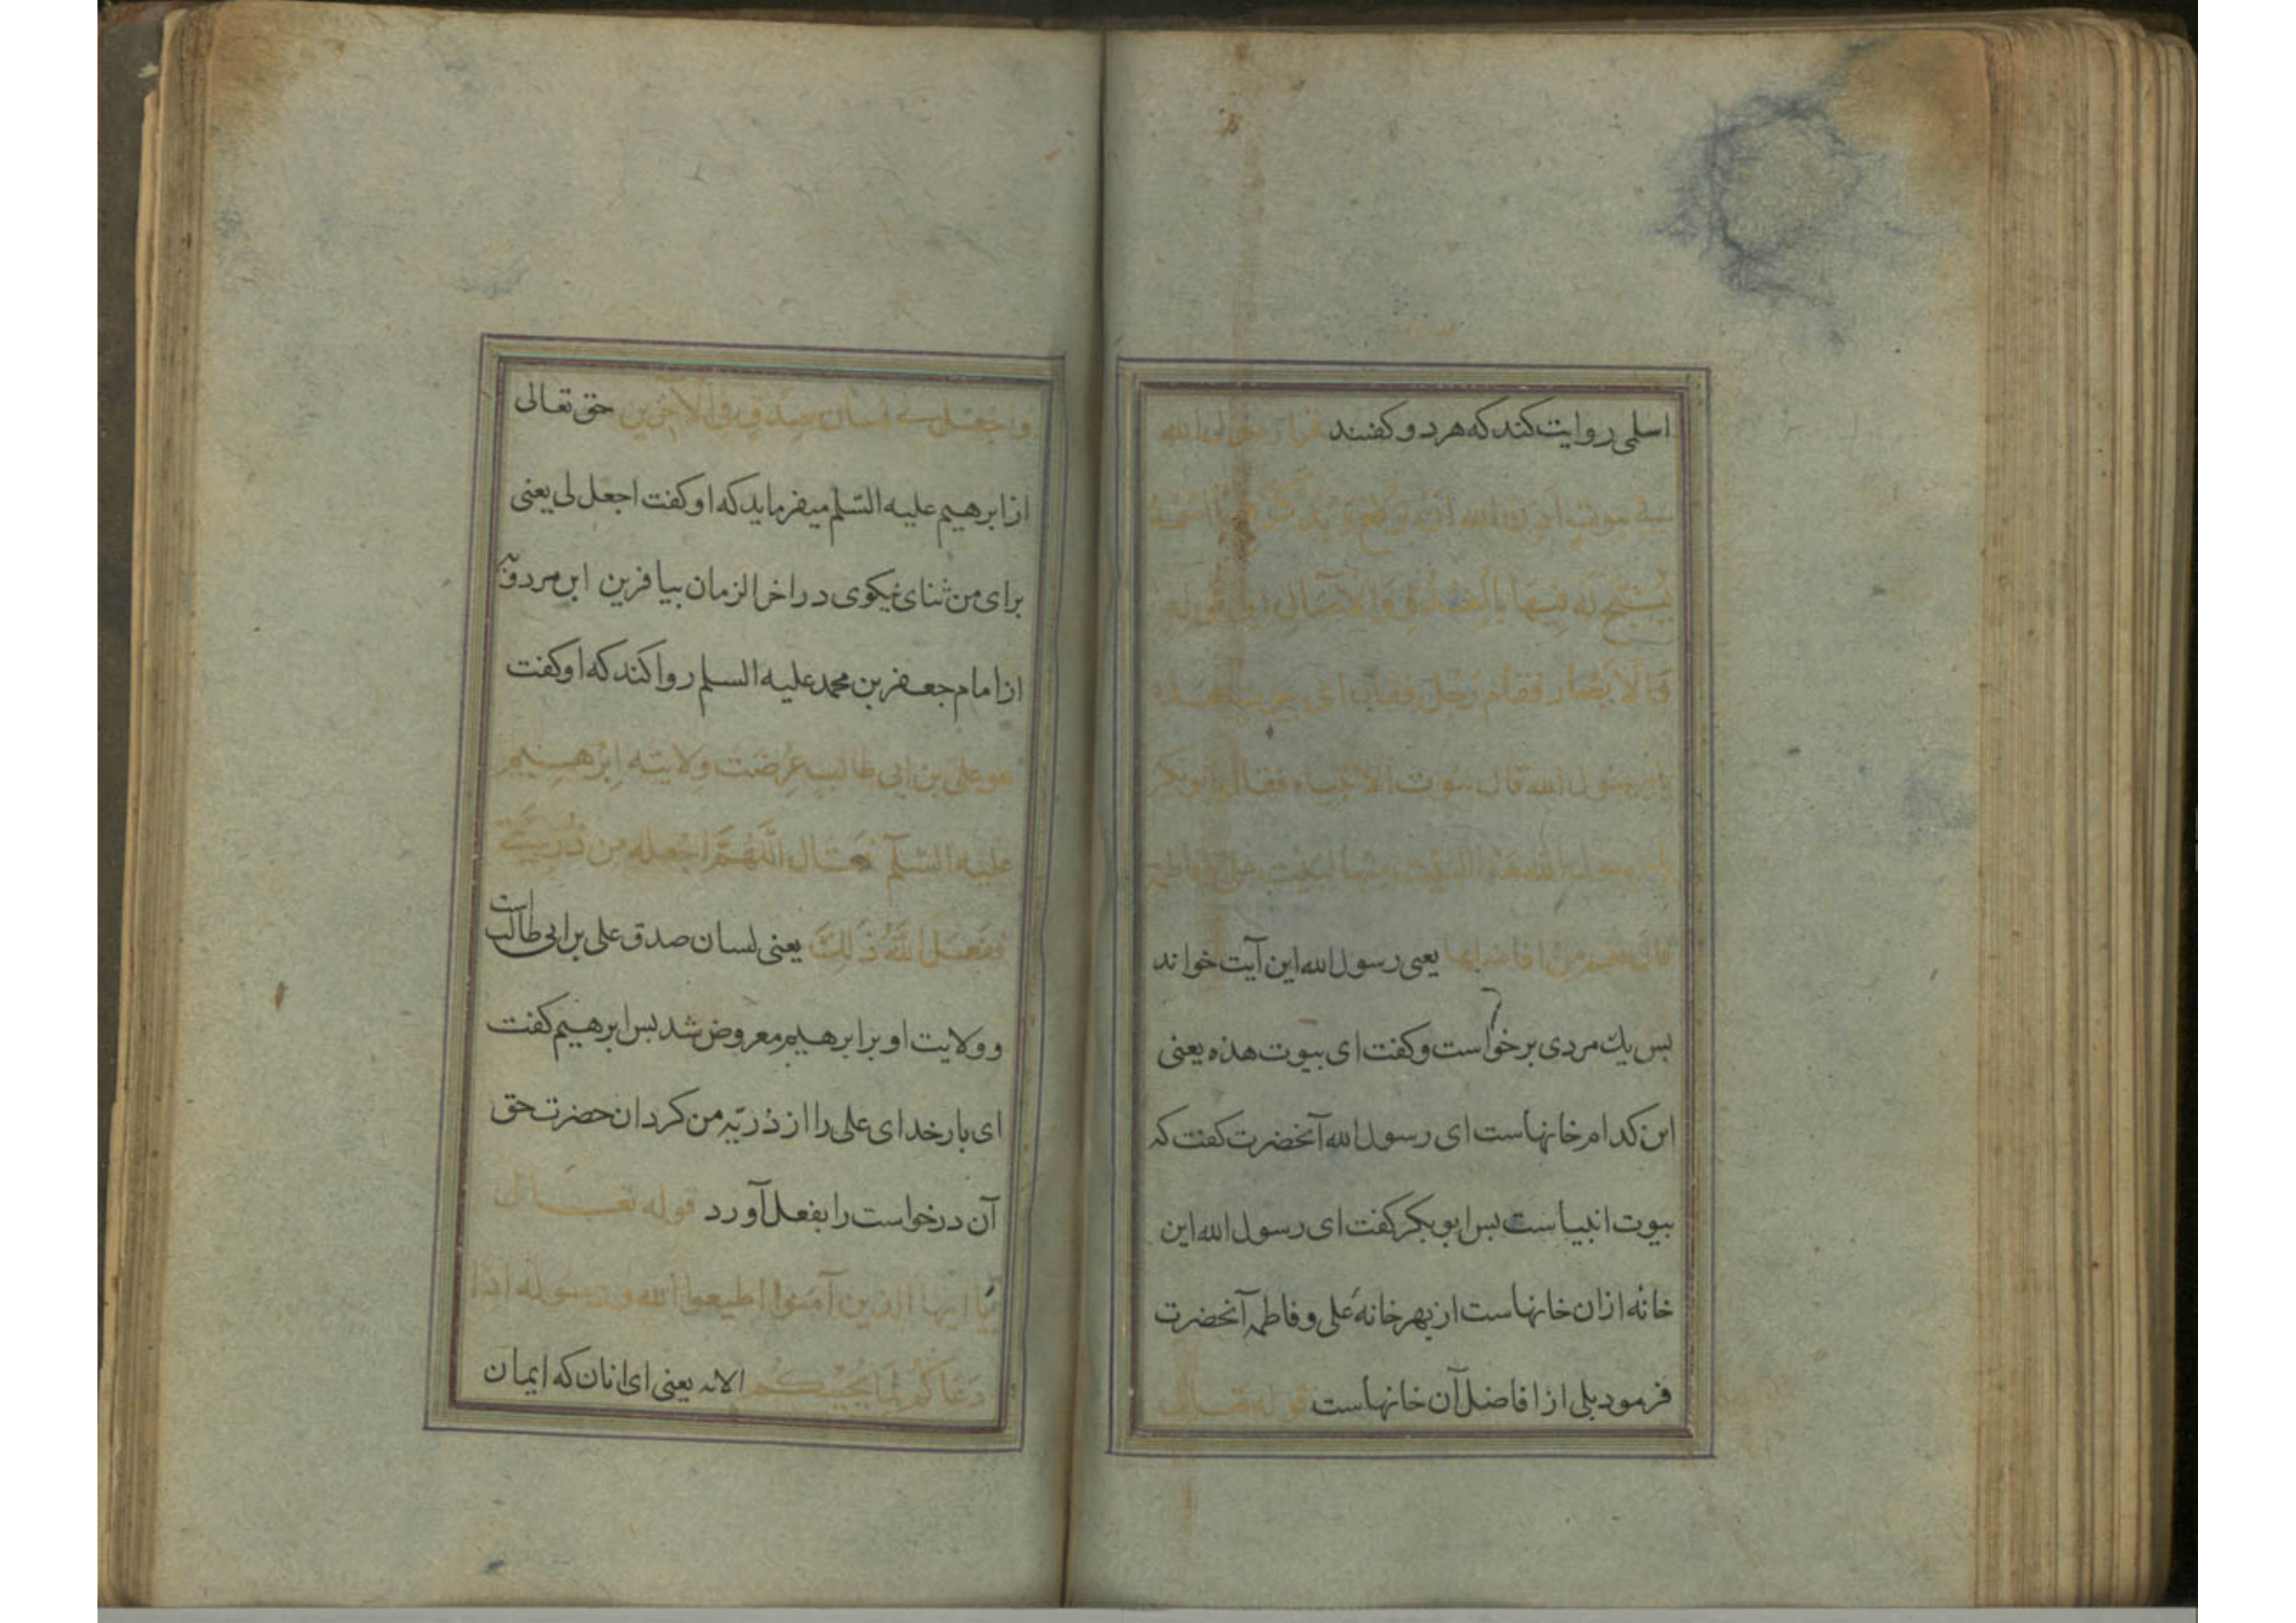 اسلمی روایت کند که هر دو کفتند قرا رسول الله
فی بیوت اذن الله ان ترفع و یذکر فیها اسمه
یسبح له فیها بالغدو و الآصال الی قوله
و الابصار فقام رجل فقال ای بیوت هذه
یا رسول الله قال بیوت الانبیاء فقال ابو بکر
یا رسول الله هذا البیت منها لبیت علی و فاطمة
قال نعم من افاضلها یعنی رسول الله این آیت خواند
بس یك مردی برخواست و کفت ای بیوت هذه یعنی
این کدام خانهاست ای رسول الله آنحضرت کفت که
بیوت انبیاست بس ابو بکر کفت ای رسول الله این
خانه ازان خانهاست از بهر خانهٔ علی و فاطمه آنحضرت
فرمود بلی از افاضل آن خانهاست قوله تعالی
واجعل لی لسان صدق فی الآخرین حق تعالی
از ابرهیم علیه السّلم میفرماید که او کفت اجعل لی یعنی
برای من ثنای نیکوی در اخر الزمان بیافرین ابن مردویه
از امام جعفر بن محمد علیه السلم روا کند که او کفت
هو علی بن ابی طالب عرضت ولایته ابرهیم
علیه السّلم فقال اللّهمّ اجعله من ذریتی
ففعل اللّه ذلك یعنی لسان صدق علی بن ابی طالب است
و ولایت او بر ابرهیم معروض شد بس ابرهیم کفت
ای بار خدای علی را از ذریّه من کردان حضرت حق
آن درخواست را بفعل آورد قوله تعالی
یا ایها الذین آمنوا اطیعوا الله و رسوله اذا
دعاکم لما یحییکم الایه یعنی ای انان که ایمان